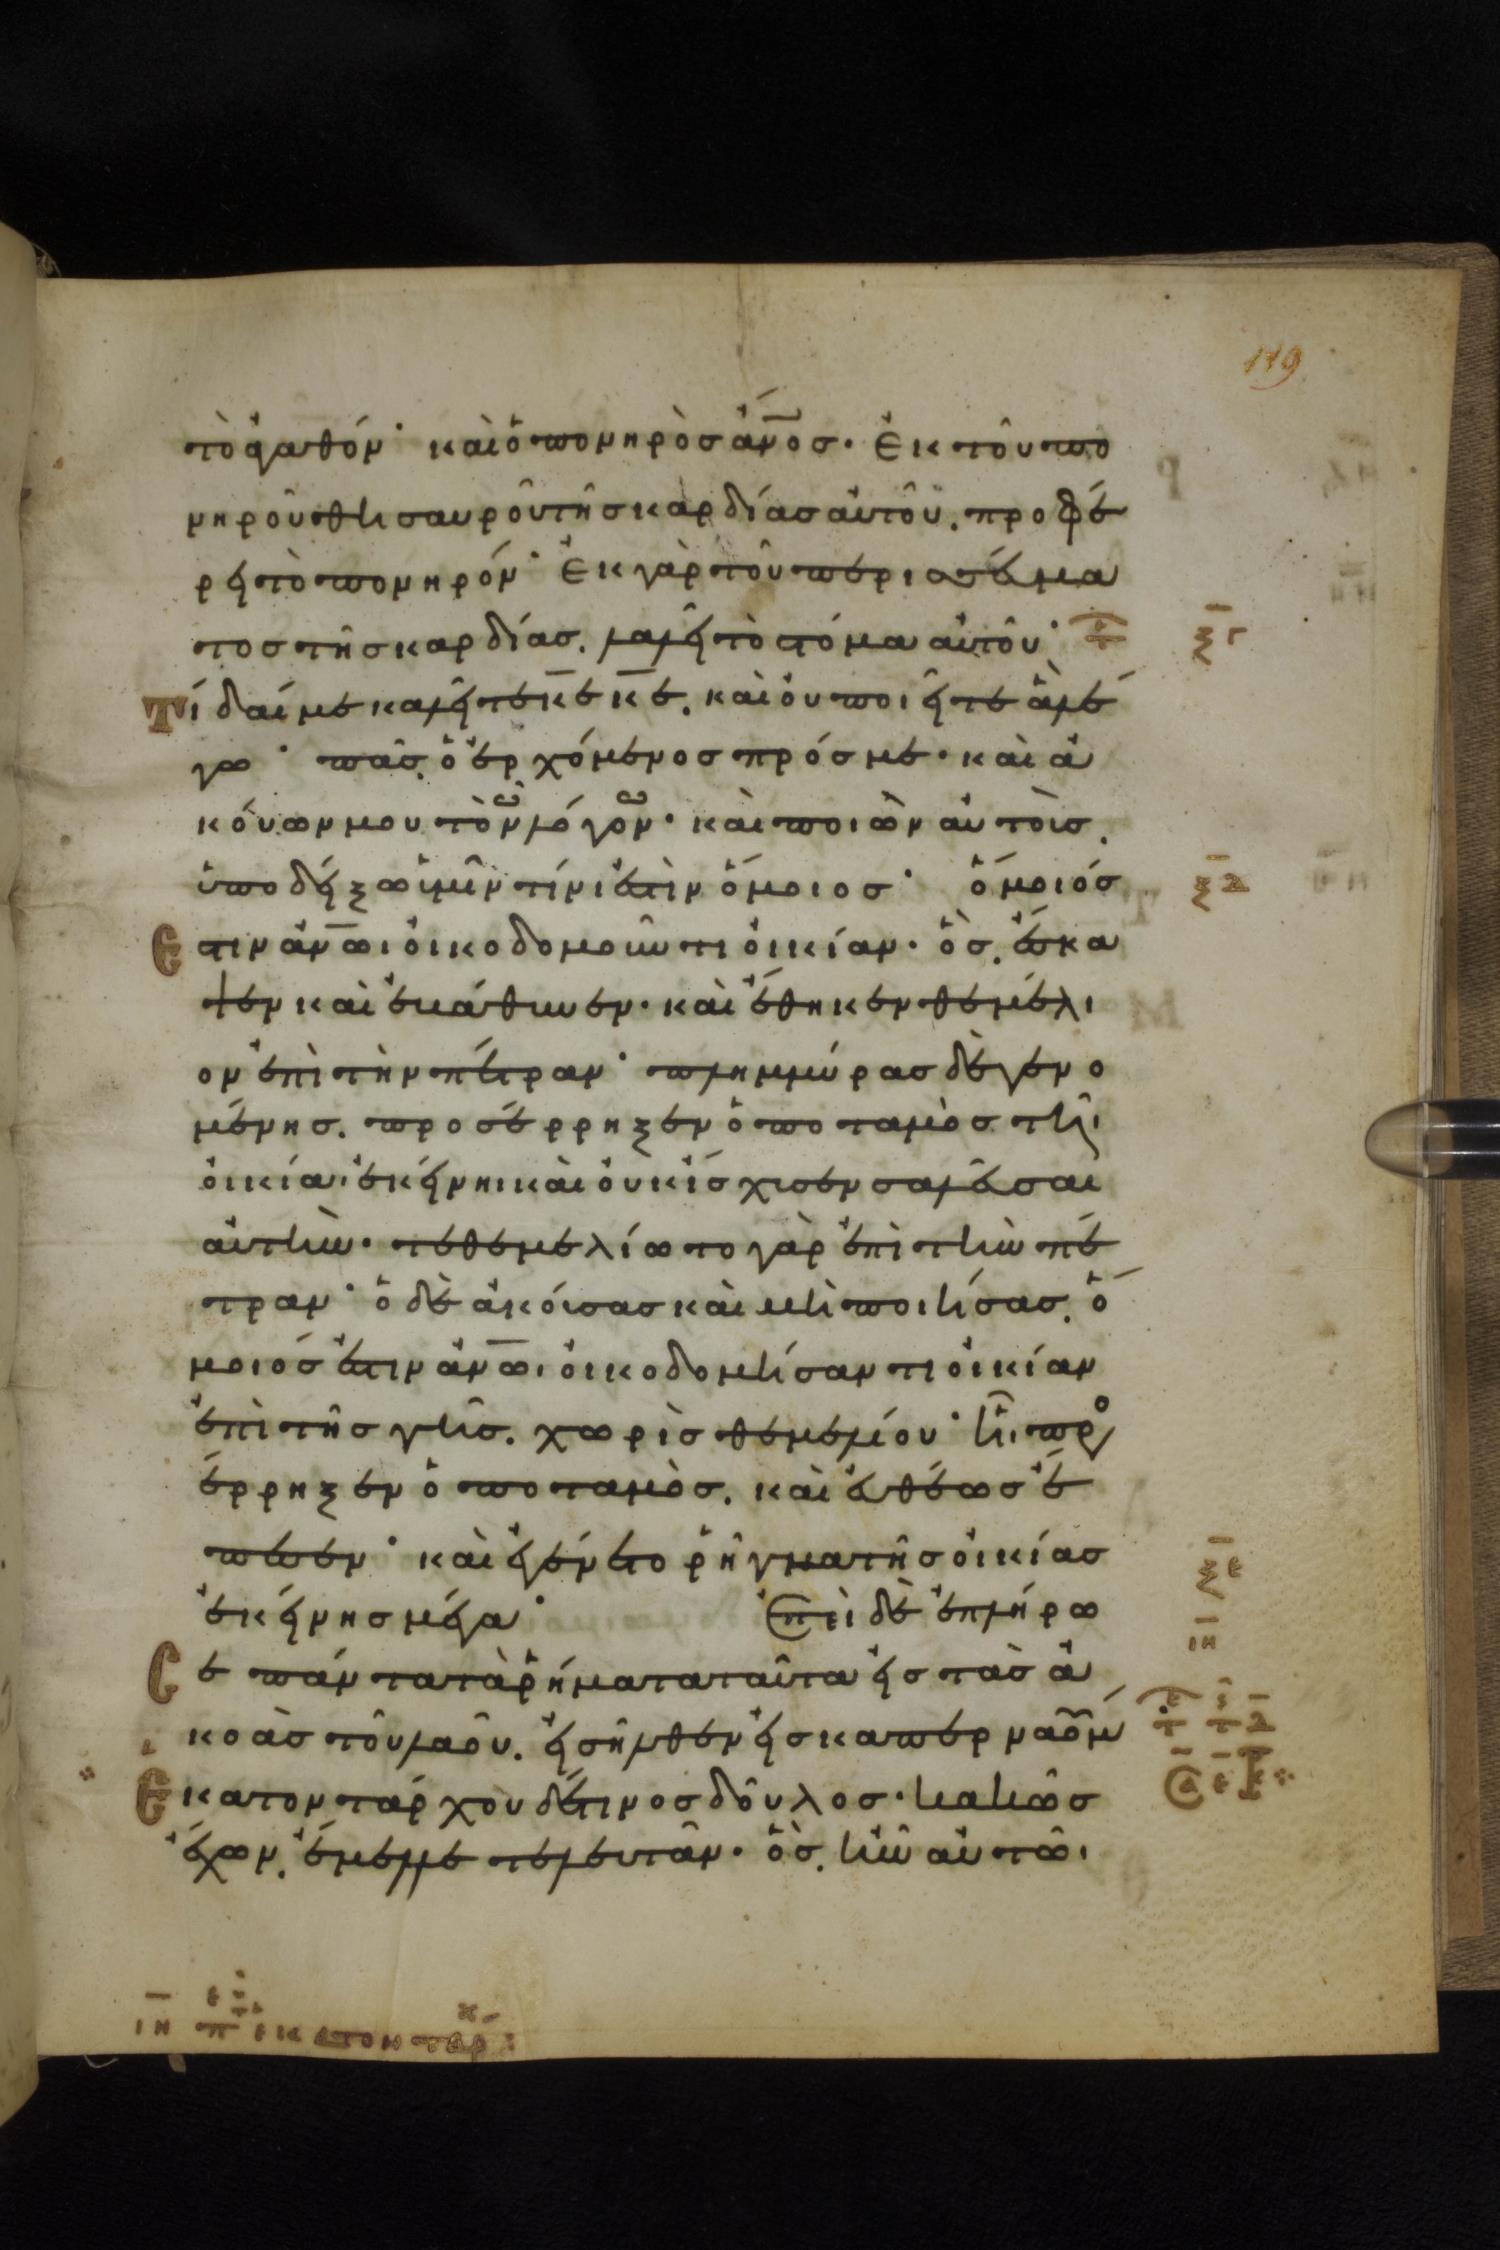 119
τὸ ἀγαθόν· καὶ ὁ πονηρὸς ἄν̅ο̅σ· ἐκ τοῦ πο
νηροῦ θησαυροῦ τῆς καρδίας αὐτοῦ. προφέ
ρει τὸ πονηρόν· ἐκ γὰρ τοῦ περισσεύμα
τος τῆς καρδίας. λαλεῖ τὸ στόμα αὐτοῦ·
ξ̅γ̅
Τί δαί με καλεῖτε κ̅ε̅ κ̅ε̅. καὶ οὐ ποιεῖτε ἃ λέ
γω· πᾶς. ὁ ἐρχόμενος πρός με· καὶ ἀ
κούων μου τὸν λόγον· καὶ ποιῶν αὐτοὶς.
ὑποδείξω ὑμῖν τίνι ἐστὶν ὅμοιος· ὅμοιός
ξ̅δ̅
Εστιν ἀν̅ω̅ι οἰκοδομοῦντι οἰκίαν· ὃς. ἔσκα
ψεν καὶ ἐβάθυνεν· καὶ ἔθηκεν θεμέλι
ον ἐπὶ τὴν πέτραν· πλημμύρας δὲ γενο
μένης. προσέρρηξεν ὁ ποταμὸς τῆι
οἰκίαι ἐκείνηι καὶ οὐκ ἴσχυσεν σαλεῦσαι
αὐτὴν· τεθεμελίωτο γὰρ ἐπὶ τὴν πέ
τραν· ὁ δὲ ἀκούσας καὶ μὴ ποιήσας. ὅ
μοιός ἐστιν ἀν̅ω̅ι οἰκοδομήσαντι οἰκίαν
ἐπὶ τῆς γῆς. χωρὶς θεμελίου· ἧι προσ
έρρηξεν ὁ ποταμὸς. καὶ εὐθέως ἔ
πεσεν· καὶ ἐγένετο ῥῆγμα τῆς οἰκίας
ξ̅ε̅
ἐκείνης μέγα· Ἐπεὶ δὲ ἐπλήρω
ι̅η̅
Cε πάντα τὰ ῥήματα ταῦτα εἰς τὰς ἀ
κοὰς τοῦ λαοῦ. εἰσῆλθεν εἰς καπερναοῦμ
Εκατοντάρχου δέ τινος δοῦλος· κακῶς
ἔχων. ἔμελλε τελευτᾶν· ὃς. ἦν αὐτῶι
ι̅η̅ π ἑκατοντάρχ